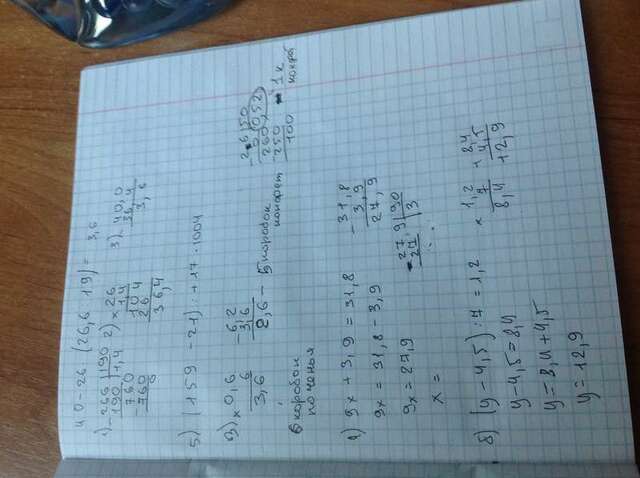 40-26 (26,6 : 19) = 3,6
1) - 266 | 190
190 | 1,4
- 760
760
0
2) × 26
1,4
104
26
36,4
3) - 40,0
36,4
3,6
5) (159 - 21) : + 17 · 1004
3) × 0,6
6
3,6
- 6,2
3,6
2,6 - 5 коробок
конфет
- 2,6 | 50
0 | 0,052
260
250
100
- 1 к
конфет
6 коробок
печенья
9x + 3,9 = 31,8
9x = 31,8 - 3,9
9x = 27,9
x =
- 31,8
3,9
27,9
- 27,9 | 90
27 | 3
б) (y - 4,5) : 7 = 1,2
y - 4,5 = 8,4
y = 8,4 + 4,5
y = 12,9
× 1,2
7
8,4
+ 8,4
4,5
12,9